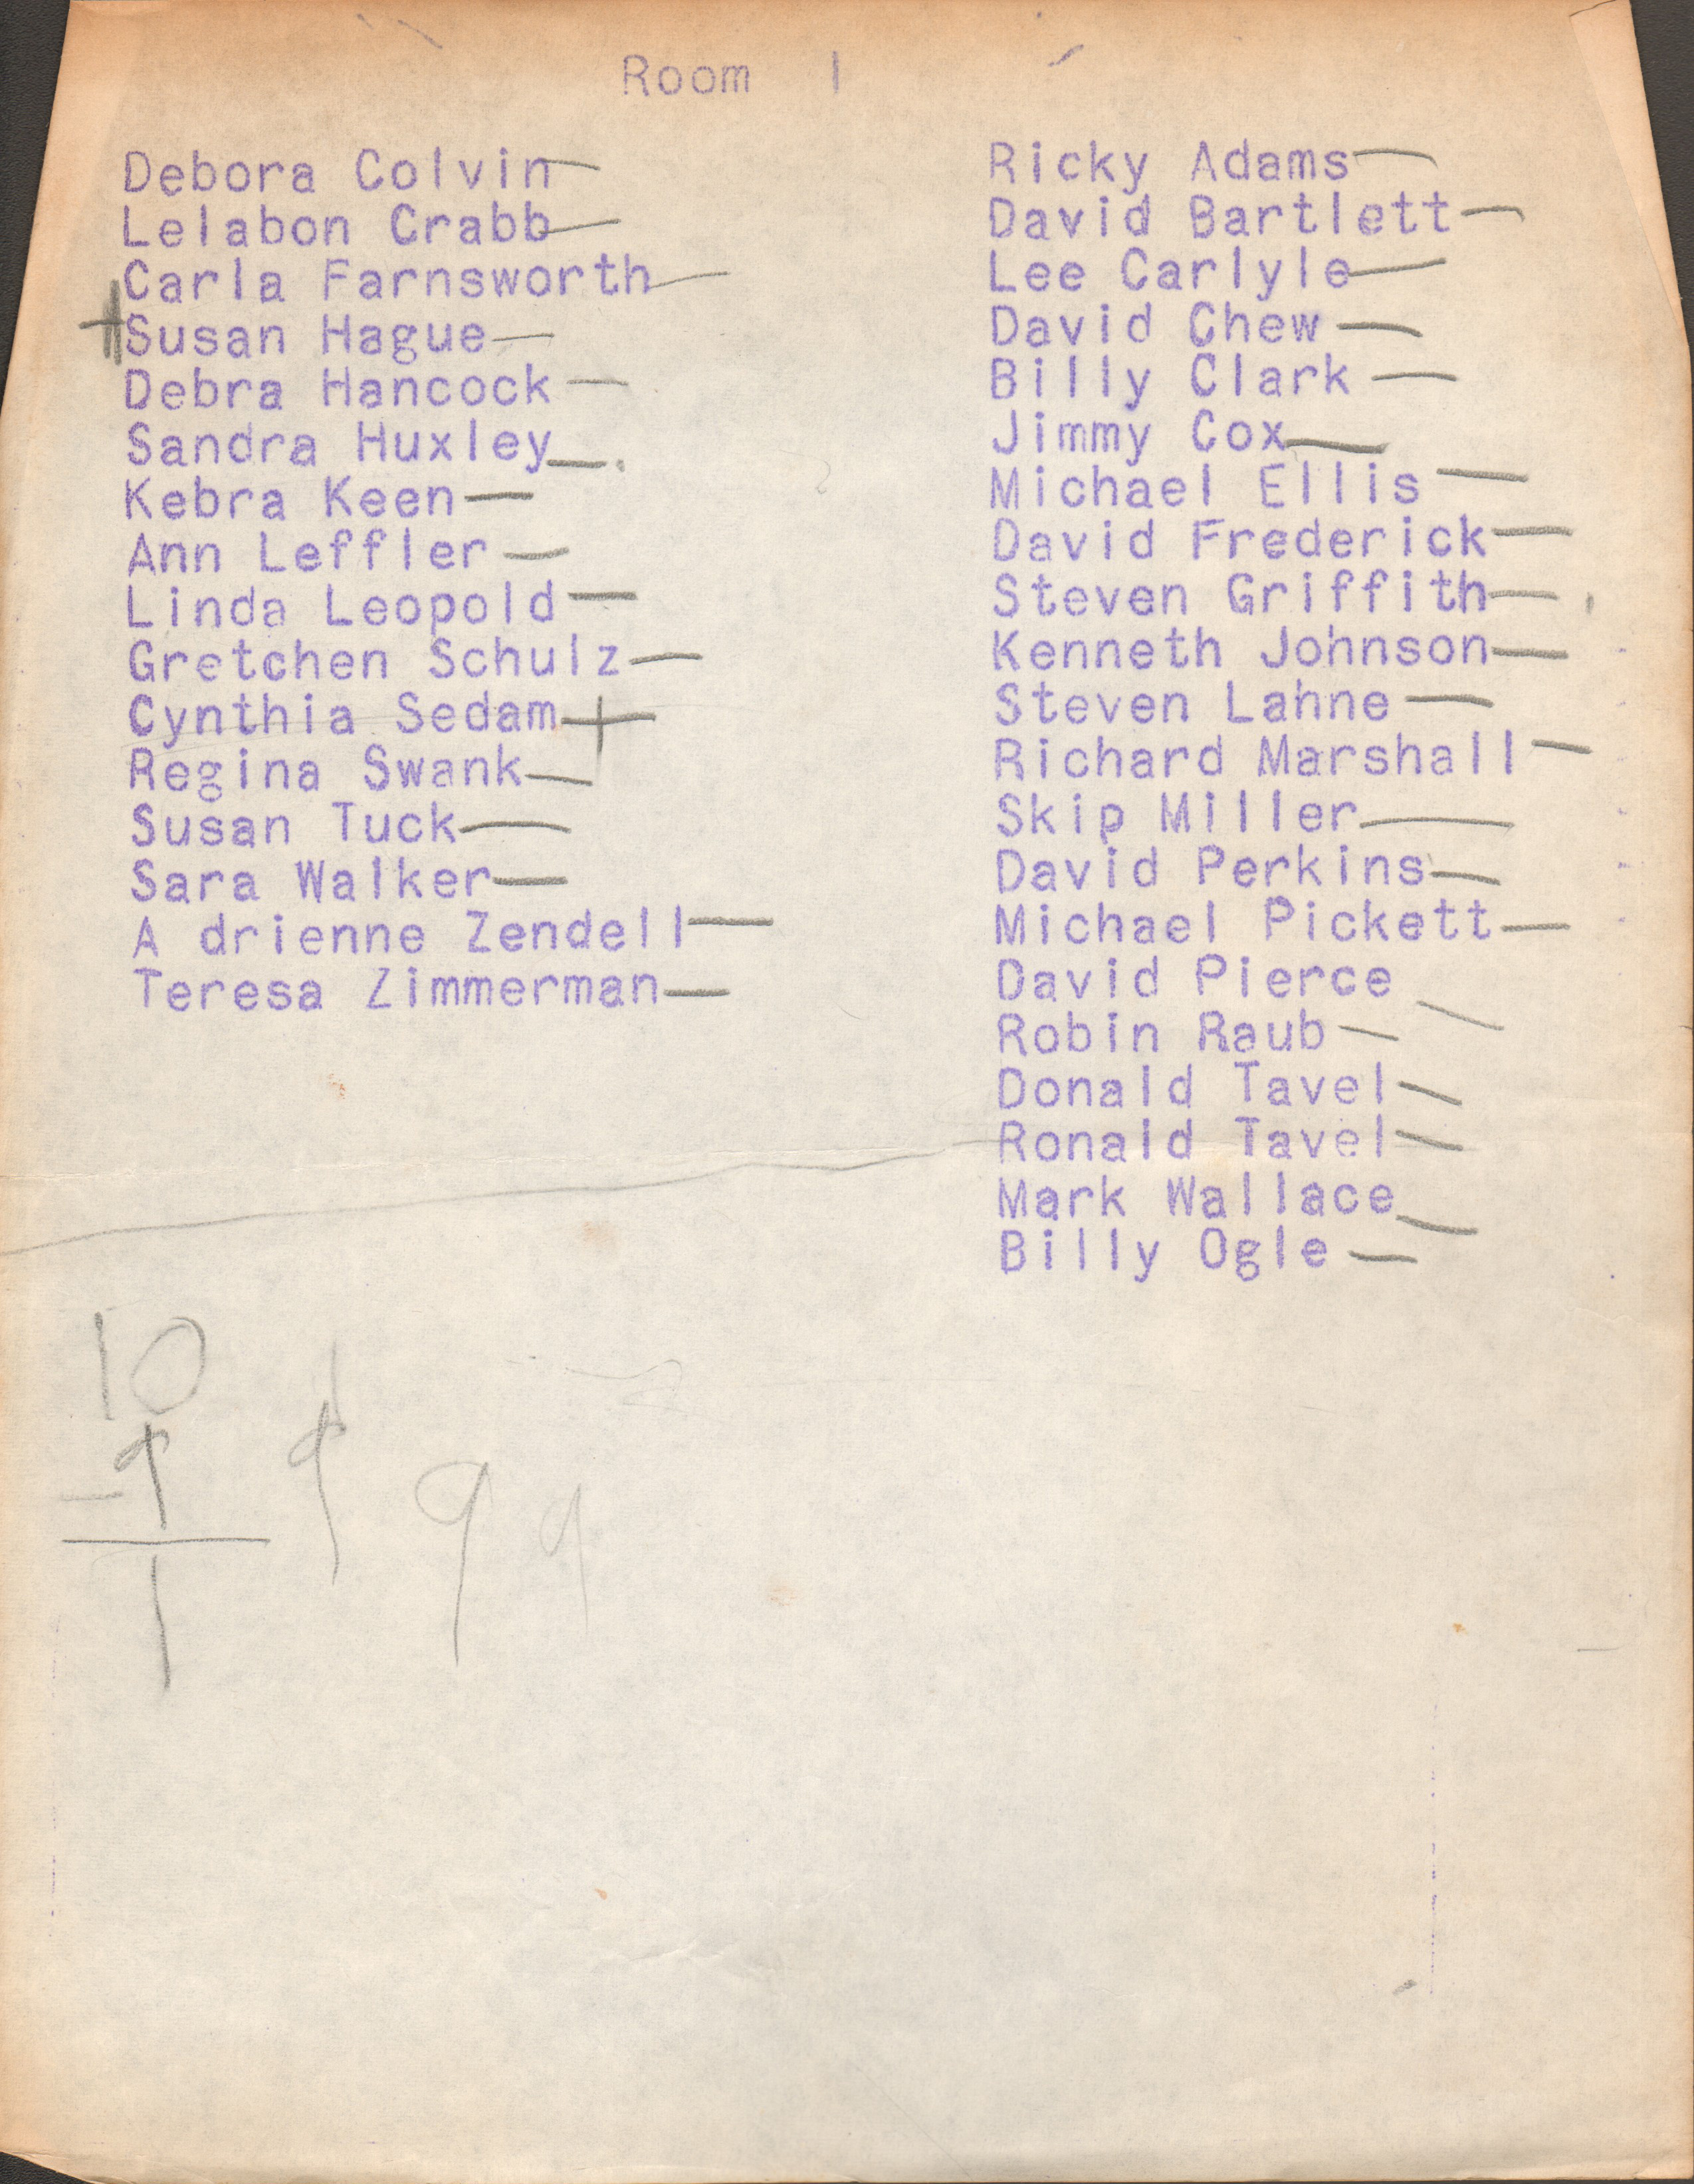 Room 1
Debora Colvin
Lelabon Crabb
Carla Farnsworth
Susan Hague
Debra Hancock
Sandra Huxley
Kebra Keen
Ann Leffler
Linda Leopold
Gretchen Schulz
Cynthia Sedam
Regina Swank
Susan Tuck
Sara Walker
A drienne Zendell
Teresa Zimmerman
Ricky Adams
David Bartlett
Lee Carlyle
David Chew
Billy Clark
Jimmy Cox
Michael Ellis
David Frederick
Steven Griffith
Kenneth Johnson
Steven Lahne
Richard Marshall
Skip Miller
David Perkins
Michael Pickett
David Pierce
Robin Raub
Donald Tavel
Ronald Tavel
Mark Wallace
Billy Ogle
10
-9 9 9 9
1